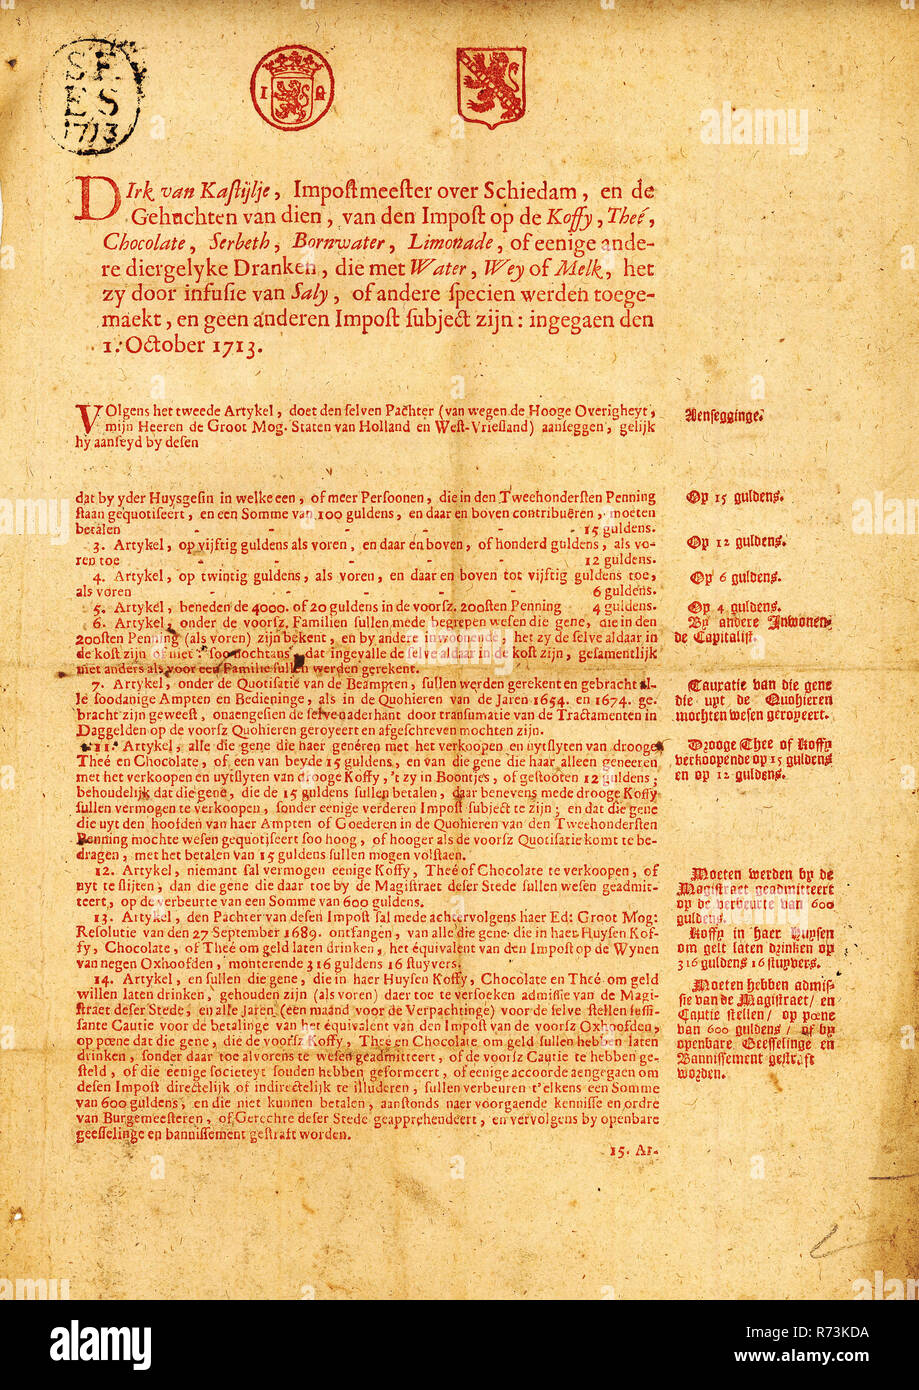 SE
ES
1713
I A
DIrk van Kaſtijlje, Impoſtmeeſter over Schiedam, en de
Gehuchten van dien, van den Impoſt op de Koffy, Theé,
Chocolate, Serbeth, Bornwater, Limonade, of eenige ande-
re diergelyke Dranken, die met Water, Wey of Melk, het
zy door infuſie van Saly, of andere ſpecien werden toege-
maekt, en geen anderen Impoſt ſubject zijn: ingegaen den
1. October 1713.
VOlgens het tweede Artykel, doet den ſelven Pachter (van wegen de Hooge Overigheyt,
mijn Heeren de Groot Mog. Staten van Holland en Weſt-Vrieſland) aanſeggen, gelijk
hy aanſeyd by deſen
Aenſegginge.
dat by yder Huysgeſin in welke een, of meer Perſoonen, die in den Tweehonderſten Penning
ſtaan gequotiſeert, en een Somme van 100 guldens, en daar en boven contribuêren, moeten
betalen - - - - - - 15 guldens.
Op 15 guldens.
3. Artykel, op vijftig guldens als voren, en daar en boven, of honderd guldens, als vo-
ren toe - - - - - - 12 guldens.
Op 12 guldens.
4. Artykel, op twintig guldens, als voren, en daar en boven tot vijftig guldens toe,
als voren - - - - - - 6 guldens.
Op 6 guldens.
5. Artykel, beneden de 4000. of 20 guldens in de voorſz. 200ſten Penning 4 guldens.
Op 4 guldens.
6. Artykel, onder de voorſz. Familien ſullen mede begrepen weſen die gene, die in den
200ſten Penning (als voren) zijn bekent, en by andere inwoonende, het zy de ſelve aldaar in
de koſt zijn of niet: ſoo nochtans, dat ingevalle de ſelve aldaar in de koſt zijn, geſamentlijk
niet anders als voor een Familie ſullen werden gerekent.
By andere Inwonen-
de Capitaliſt.
7. Artykel, onder de Quotiſatie van de Beampten, ſullen werden gerekent en gebracht al-
le ſoodanige Ampten en Bedieninge, als in de Quohieren van de Jaren 1654. en 1674. ge-
bracht zijn geweeſt, onaengeſien de ſelve naderhant door tranſumatie van de Tractamenten in
Daggelden op de voorſz Quohieren geroyeert en afgeſchreven mochten zijn.
Tauxatie van die gene
die uyt de Quohieren
mochten weſen geroyeert.
11. Artykel, alle die gene die haer genéren met het verkoopen en uytſlyten van drooge
Theé en Chocolate, of een van beyde 15 guldens, en van die gene die haar alleen geneeren
met het verkoopen en uytſlyten van drooge Koffy, 't zy in Boontjes, of geſtooten 12 guldens;
behoudelijk dat die gene, die de 15 guldens ſullen betalen, daar benevens mede drooge Koffy
ſullen vermogen te verkoopen, ſonder eenige verderen Impoſt ſubject te zijn; en dat die gene
die uyt den hoofden van haer Ampten of Goederen in de Quohieren van den Tweehonderſten
Penning mochte weſen gequotiſeert ſoo hoog, of hooger als de voorſz Quotiſatie komt te be-
dragen, met het betalen van 15 guldens ſullen mogen volſtaen.
Drooge Thee of Koffy
verkoopende op 15 guldens
en op 12 guldens.
12. Artykel, niemant ſal vermogen eenige Koffy, Theé of Chocolate te verkoopen, of
uyt te ſlijten, dan die gene die daar toe by de Magiſtraet deſer Stede ſullen weſen geadmit-
teert, op de verbeurte van een Somme van 600 guldens.
Moeten werden by de
Magiſtraet geadmitteert
op de verbeurte van 600
guldens.
13. Artykel, den Pachter van deſen Impoſt ſal mede achtervolgens haer Ed: Groot Mog:
Reſolutie van den 27 September 1689. ontfangen, van alle die gene die in haer Huyſen Kof-
fy, Chocolate, of Theé om geld laten drinken, het équivalent van den Impoſt op de Wynen
van negen Oxhoofden, monterende 316 guldens 16 ſtuyvers.
Koffy in haer Huyſen
om gelt laten drinken op
316 guldens 16 ſtuyvers.
14. Artykel, en ſullen die gene, die in haer Huyſen Koffy, Chocolate en Theé om geld
willen laten drinken, gehouden zijn (als voren) daer toe te verſoeken admiſſie van de Magi-
ſtraet deſer Stede, en alle Jaren (een maand voor de Verpachtinge) voor de ſelve ſtellen ſuffi-
ſante Cautie voor de betalinge van het équivalent van den Impoſt van de voorſz Oxhoofden,
op pœne dat die gene, die de voorſz Koffy, Thee en Chocolate om geld ſullen hebben laten
drinken, ſonder daar toe alvorens te weſen geadmitteert, of de voorſz Cautie te hebben ge-
ſteld, of die eenige ſocieteyt ſouden hebben geformeert, of eenige accoorde aengegaen om
deſen Impoſt directelijk of indirectelijk te illuderen, ſullen verbeuren t'elkens een Somme
van 600 guldens, en die niet kunnen betalen, aanſtonds naer voorgaende kenniſſe en ordre
van Burgemeeſteren, of Gerechte deſer Stede geapprehendeert, en vervolgens by openbare
geeſſelinge en banniſſement geſtraft worden.
Moeten hebben admiſ-
ſie van de Magiſtraet / en
Cautie ſtellen / op pœne
van 600 guldens / of by
openbare Geeſſelinge en
Banniſſement geſtraft
worden.
15. Ar-
alamy
Image ID: R73KDA
www.alamy.com